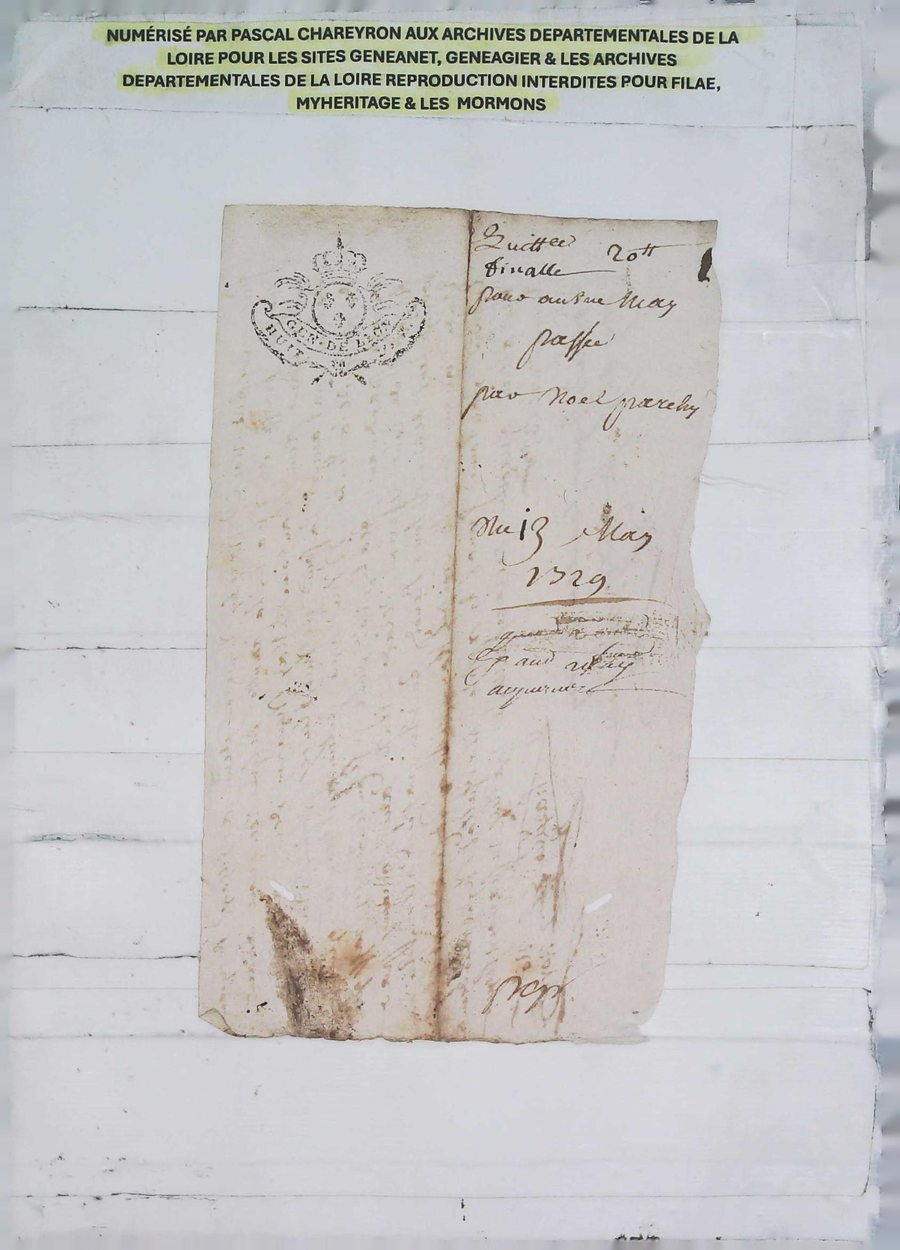 NUMÉRISÉ PAR PASCAL CHAREYRON AUX ARCHIVES DEPARTEMENTALES DE LA
LOIRE POUR LES SITES GENEANET, GENEAGIER & LES ARCHIVES
DEPARTEMENTALES DE LA LOIRE REPRODUCTION INTERDITES POUR FILAE,
MYHERITAGE & LES MORMONS
GEN. DE LYON
HUIT
Quittce 20tt
finalle
pour may
passee
par Noel parchy
Du 13 May
1729